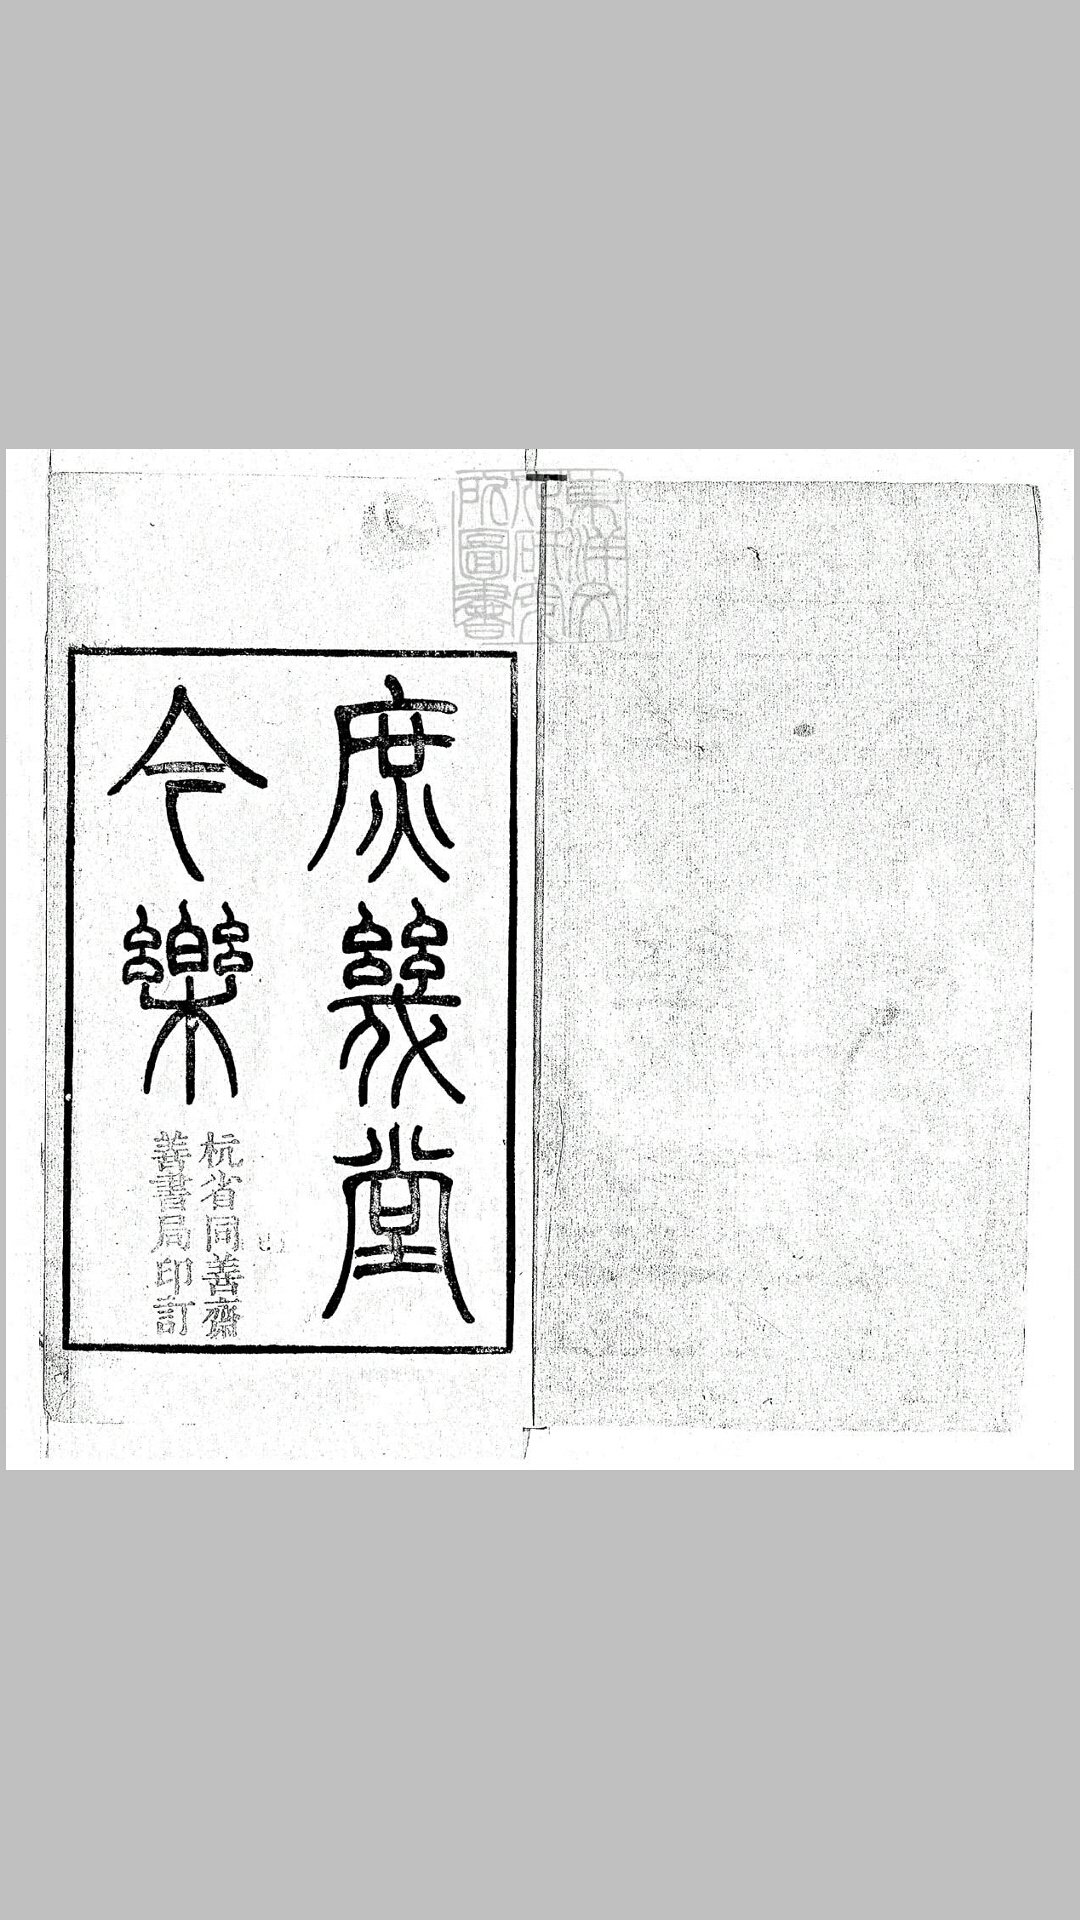 庶幾堂
今樂
杭省同善齋
善書局印訂
東洋文
化研究
所圖書